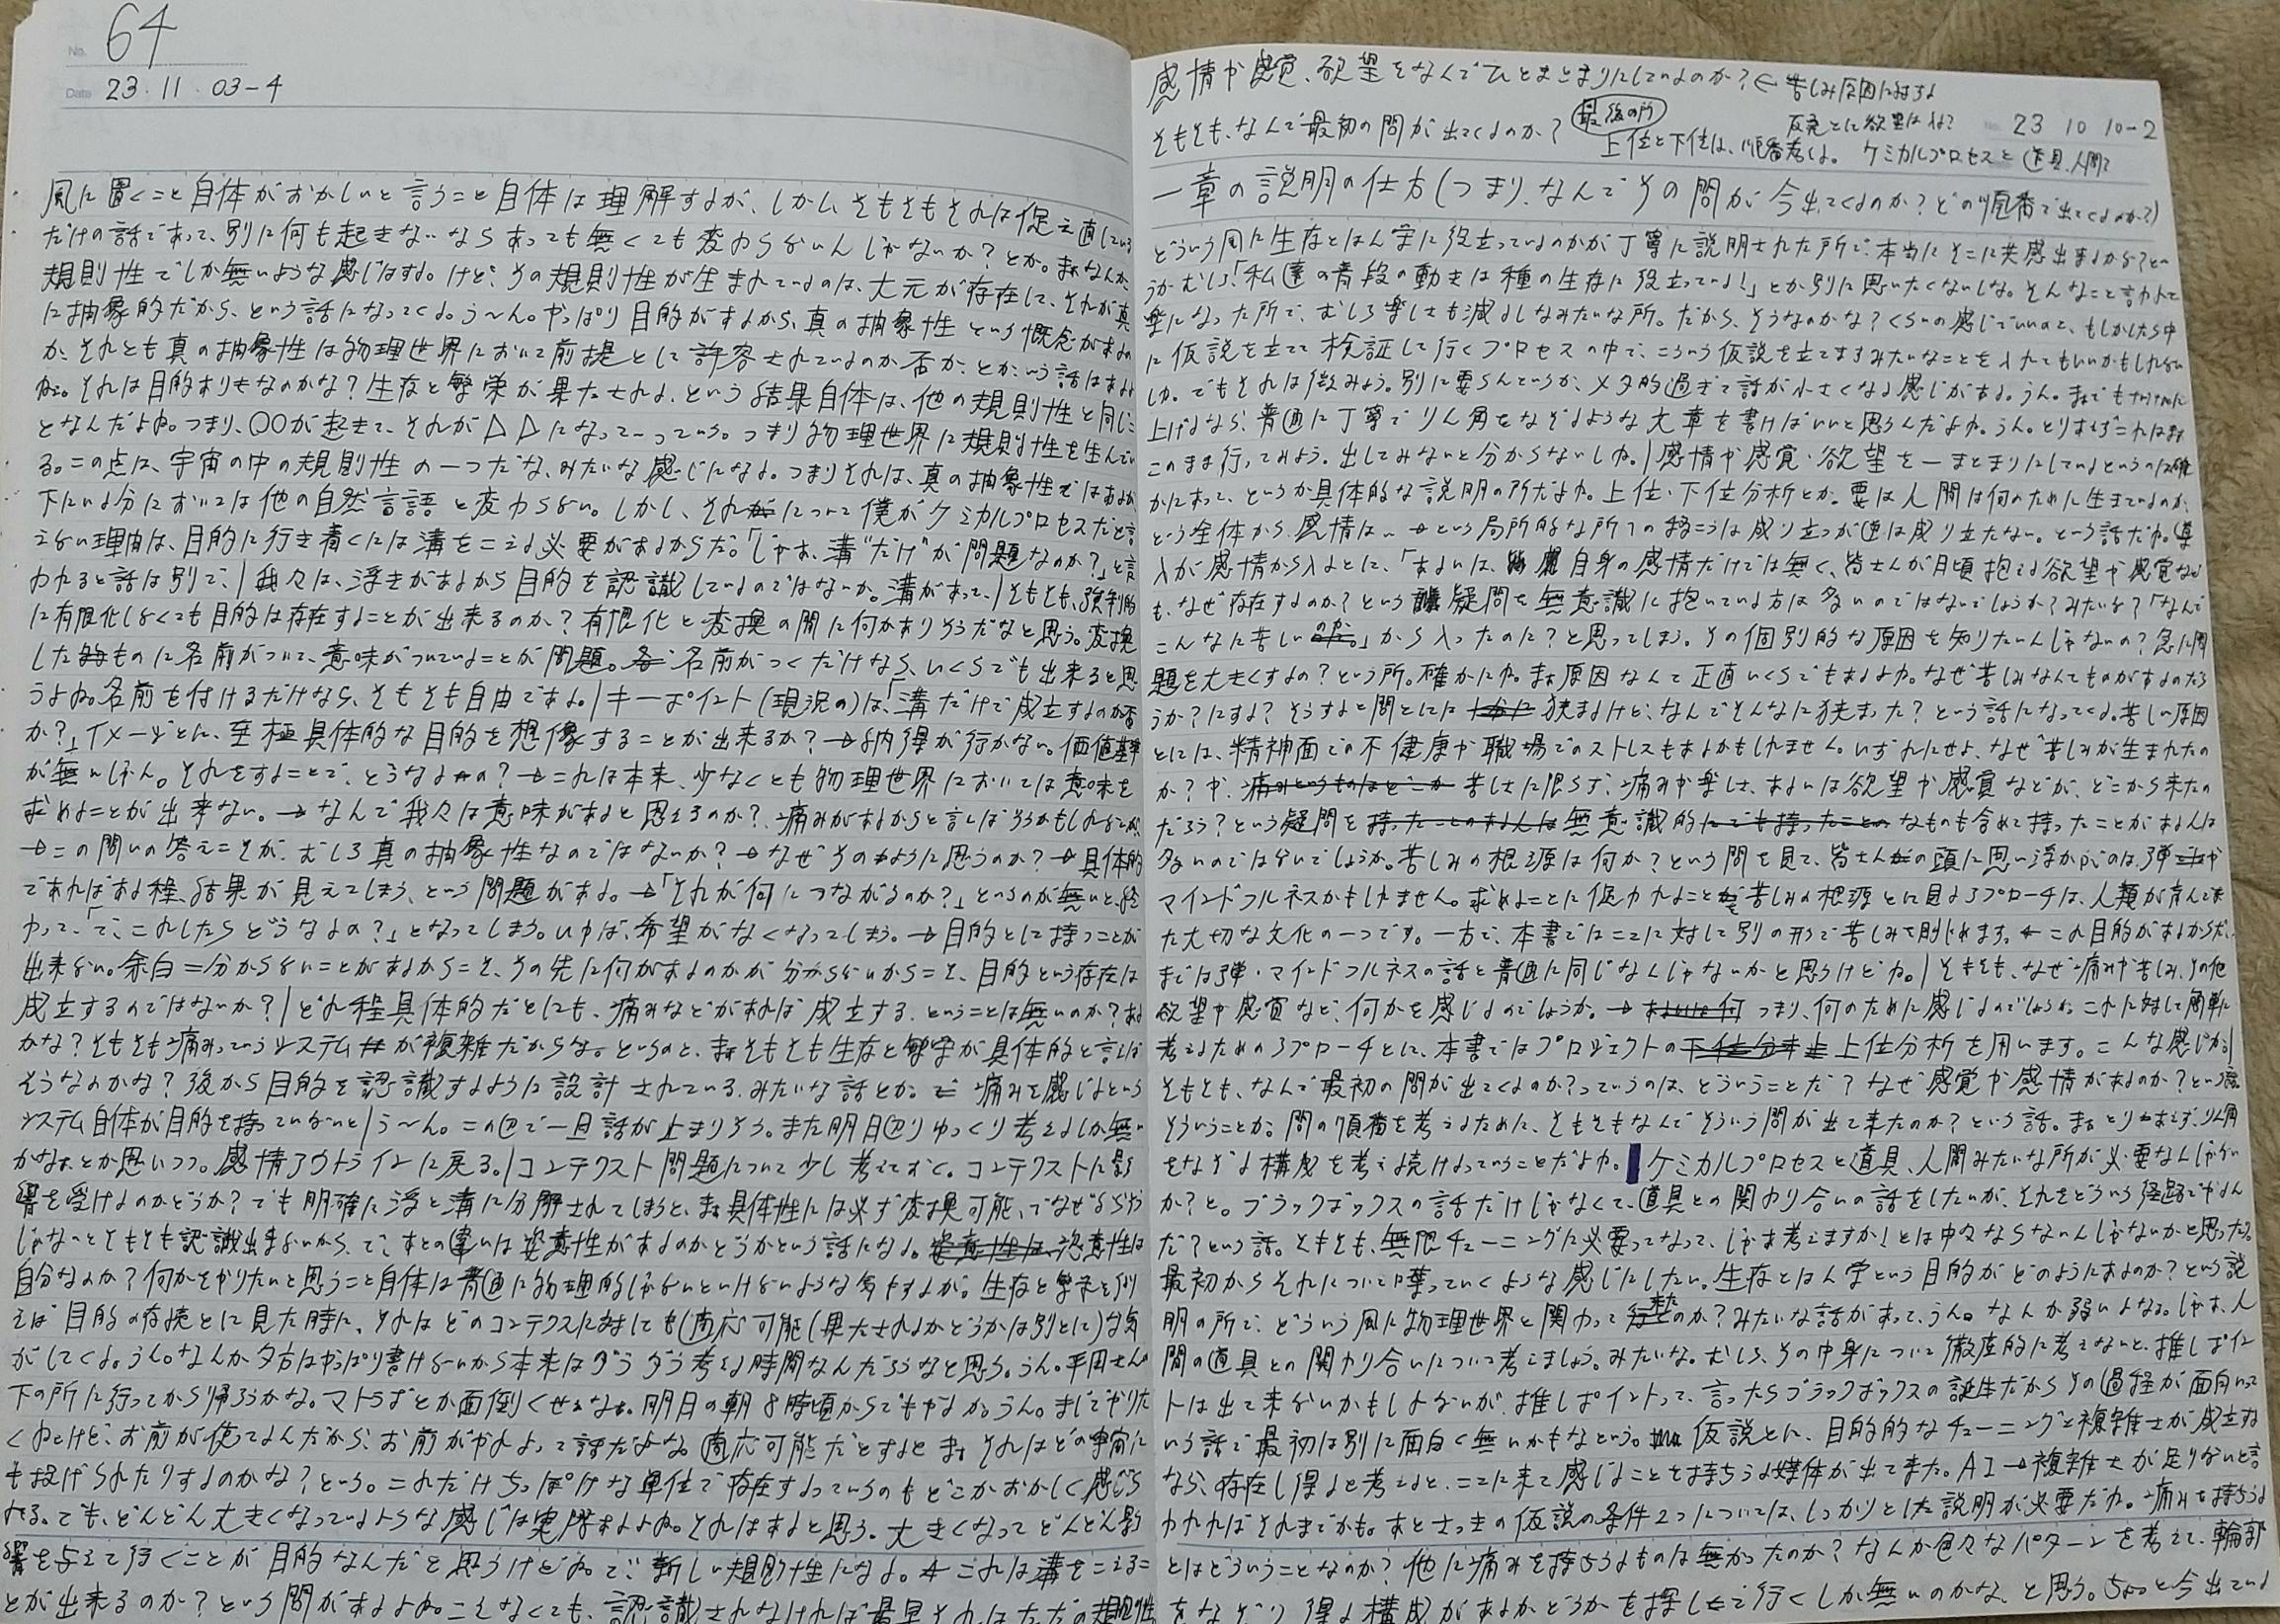 No. 64
Date 23・11・03-4
風に置くこと自体がおかしいと言うこと自体は理解するが、しかし、そもそもそれは捉え直している
だけの話であって、別に何も起きないならあっても無くても変わらないんじゃないか？とか。まぁなんか、
規則性でしか無いような感じはする。けど、その規則性が生まれているのは、大元が存在して、それが真
に抽象的だから、という話になってくる。う〜ん。やっぱり目的があるから、真の抽象性という概念がある
か、それとも真の抽象性は物理世界において前提として許容されているのか否か、とかいう話はあるよ
ね。それは目的ありきなのかな？生存と繁栄が果たされる、という結果自体は、他の規則性と同じこ
となんだよね。つまり、〇〇が起きて、それが△△になって〜っていう。つまり物理世界に規則性を生んでい
る。この点は、宇宙の中の規則性の一つだな、みたいな感じになる。つまりそれは、真の抽象性ではあるが、
下にいる分においては他の自然言語と変わらない。しかし、それについて僕がケミカルプロセスだと言
えない理由は、目的に行き着くには溝をこえる必要があるからだ。「じゃあ、溝"だけ"が問題なのか？」と言
われると話は別で、/我々は、浮きがあるから目的を認識しているのではないか。溝があって、/そもそも、強制的
に有限化しなくても目的は存在することが出来るのか？有限化と変換の間に何かありそうだなと思う。変換
したものに名前がついて、意味がついていることが問題。名前がつくだけなら、いくらでも出来ると思
うよね。名前を付けるだけなら、そもそも自由ですよ。/キーポイント(現況の)は、「溝だけで成立するのか否
か？」イメージとして、至極具体的な目的を想像することが出来るか？→納得が行かない。価値基準
が無いじゃん。それをすることで、どうなるの？→これは本来、少なくとも物理世界においては意味を
求めることが出来ない。→なんで我々は意味があると思えるのか？痛みがあるからと言えばそうかもしれないが、
→この問いの答えこそが、むしろ真の抽象性なのではないか？→なぜそのように思うのか？→具体的
であればある程、結果が見えてしまう、という問題がある。→「それが何につながるのか？」というのが無いと、終
わって、「で、これしたらどうなるの？」となってしまう。いわば、希望がなくなってしまう。→目的として持つことが
出来ない。余白=分からないことがあるからこそ、その先に何があるのかが分からないからこそ、目的という存在は
成立するのではないか？/どれ程具体的だとしても、痛みなどがあれば成立する、ということは無いのか？ある
かな？そもそも痛みっていうシステムが複雑だからな。というのと、まぁそもそも生存と繁栄が具体的と言えば
そうなのかな？後から目的を認識するように設計されている、みたいな話とか。で 痛みを感じるという
システム自体が目的を持っていないと/う〜ん。この辺で一旦話が止まりそう。また明日辺りゆっくり考えるしか無い
かなぁとか思いつつ。感情アウトラインに戻る。/コンテクスト問題について少し考えておく。コンテクストに影
響を受けるのかどうか？でも明確に浮と溝に分解されてしまうと、まぁ具体性には必ず変換可能、でなぜならそう
じゃないとそもそも認識出来ないから、で、あとの違いは恣意性があるのかどうかという話になる。恣意性は
自分なのか？何かをやりたいと思うこと自体は普通に物理的じゃないといけないような気がするが。生存と繁栄を例
えば目的の存続として見た時に、それはどのコンテクスに対しても適応可能(果たされるかどうかは別として)な気
がしてくる。うん。なんか夕方はやっぱり書けないから本来はダラダラ考える時間なんだろうなと思う。うん。平田さんの
下の所に行ってから帰ろうかな。マトラボとか面倒くせぇなぁ。明日の朝8時頃からでもやるか。うん。まじでやりた
くねぇけど、お前が使ってるんだから、お前がやれよって話だよな。適応可能だとすると まぁ それはどの宇宙に
も投げられたりするのかな？という。これだけちっぽけな単位で存在するっていうのもどこかおかしく感じら
れる。でも、どんどん大きくなっているような感じは実際あるよね。それはあると思う。大きくなってどんどん影
響を与えて行くことが目的なんだと思うけどね。で、新しい規則性になる。← これは溝をこえるこ
とが出来るのか？という問があるよね。こえなくても、認識されなければ最早それはただの規則性
感情や感覚、欲望をなんでひとまとまりにしているのか？← 苦しみ原因に対する
反発として欲望はね？
そもそも、なんで最初の問が出てくるのか？ 最後の所
上位と下位は、順番考える。ケミカルプロセスと道具、人間で
No. 23 10 10-2
一章の説明の仕方(つまり、なんでその問が今出てくるのか？どの順番で出てくるのか？)
どういう風に生存とはん栄に役立っているのかが丁寧に説明された所で、本当にそこに共感出来るかな？とい
うか むしろ「私達の普段の動きは種の生存に役立っている！」とか別に思いたくないしな。そんなこと言われて
楽になった所で、むしろ楽しさも減るしなみたいな所。だから、そうなのかな？くらいの感じでいいので、もしかしたら中
に仮説を立てて検証して行くプロセスの中で、こういう仮説を立てますみたいなことを入れてもいいかもしれない
しね。でもそれは微みよう。別に要らんていうか、メタ的過ぎて話が小さくなる感じがある。うん。
上げるなら、普通に丁寧でりん角をなぞるような文章を書けばいいと思うんだよね。うん。とりあえずこれはまぁ
このまま行ってみよう。出してみないと分からないしね。/感情や感覚・欲望を一まとまりにしているというのは確
かにあって、というか具体的な説明の所だよね。上位・下位分析とか。要は人間は何のために生きているのか、
という全体から、感情は、、→という局所的な所への移こうは成り立つが逆は成り立たない。という話だね。(導
入が感情から入るとして、「あるいは、自身の感情だけでは無く、皆さんが日頃抱える欲望や感覚など
も、なぜ存在するのか？という疑問を無意識に抱いている方は多いのではないでしょうか？みたいな？「なんで
こんなに苦しい」から入ったのに？と思ってしまう。その個別的な原因を知りたいんじゃないの？急に問
題を大きくするの？という所。確かにね。まぁ原因なんて正直いくらでもあるよね。なぜ苦しみなんてものがあるのだろ
うか？にする？そうすると問としては狭まるけど、なんでそんなに狭まった？という話になってくる。苦しい原因
としては、精神面での不健康や職場でのストレスもあるかもしれません。いずれにせよ、なぜ苦しみが生まれたの
か？や、苦しさに限らず、痛みや楽しさ、あるいは欲望や感覚などが、どこから来たの
だろう？という疑問を無意識的なものも含めて持ったことがある人は
多いのではないでしょうか。苦しみの根源は何か？という問を見て、皆さんの頭に思い浮かぶのは、禅や
マインドフルネスかもしれません。求めることに促われることを苦しみの根源として見るアプローチは、人類が育んでき
た大切な文化の一つです。一方で、本書ではここに対して別の形で苦しみを別じめます。← この目的があるからだ、
までは禅・マインドフルネスの話と普通に同じなんじゃないかと思うけどね。/そもそも、なぜ痛みや苦しみ、その他
欲望や感覚など、何かを感じるのでしょうか。→つまり、何のために感じるのでしょうか。これに対して簡単に
考えるためのアプローチとして、本書ではプロジェクトの上位分析を用います。こんな感じか。/
そもそも、なんで最初の問が出てくるのか？っていうのは、どういうことだ？なぜ感覚や感情があるのか？という話
そういうことか。問の順番を考えるために、そもそもなんでそういう問が出て来たのか？という話。まぁとりあえず、りん角
をなぞる構成を考え続けるっていうことだよね。ケミカルプロセスと道具、人間みたいな所が必要なんじゃない
か？と。ブラックボックスの話だけじゃなくて、道具との関わり合いの話をしたいが、それをどういう経路でやるん
だ？という話。そもそも、無限チューニングに必要ってなって、じゃあ考えますか！とは中々ならないんじゃないかと思った。
最初からそれについて喋っていくような感じにしたい。生存とはん栄という目的がどのようにあるのか？という説
明の所で、どういう風に物理世界と関わってのか？みたいな話があって、うん。なんか弱いよなぁ。じゃあ、人
間の道具との関わり合いについて考えましょう。みたいな。むしろ、その中身について徹底的に考えないと、推しポイン
トは出て来ないかもしれないが、推しポイントって、言ったらブラックボックスの誕生だからその過程が面白いって
いう話で最初は別に面白く無いかもなという。仮説として、目的的なチューニングと複雑さが成立する
なら、存在し得ると考えると、ここに来て感じることを持ちうる媒体が出てきた。AI→複雑さが足りないと言
われればそれまでかも。あとさっきの仮説の条件2つについては、しっかりとした説明が必要だね。痛みを持ちうる
とはどういうことなのか？他に痛みを持ちうるものは無かったのか？なんか色々なパターンを考えて、輪郭
をなぞり得る構成があるかどうかを探して行くしか無いのかな、と思う。ちょっと今出ている